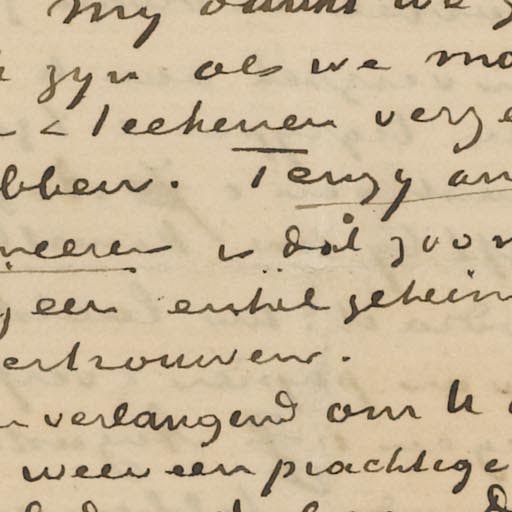 my dunkt we
zyn als we mo
< Teekenen verge
bben. Tenzy an
neeren is dat zoo n
geen enkel geheim
ertrouwen.
n verlangend om U
weer een prachtige